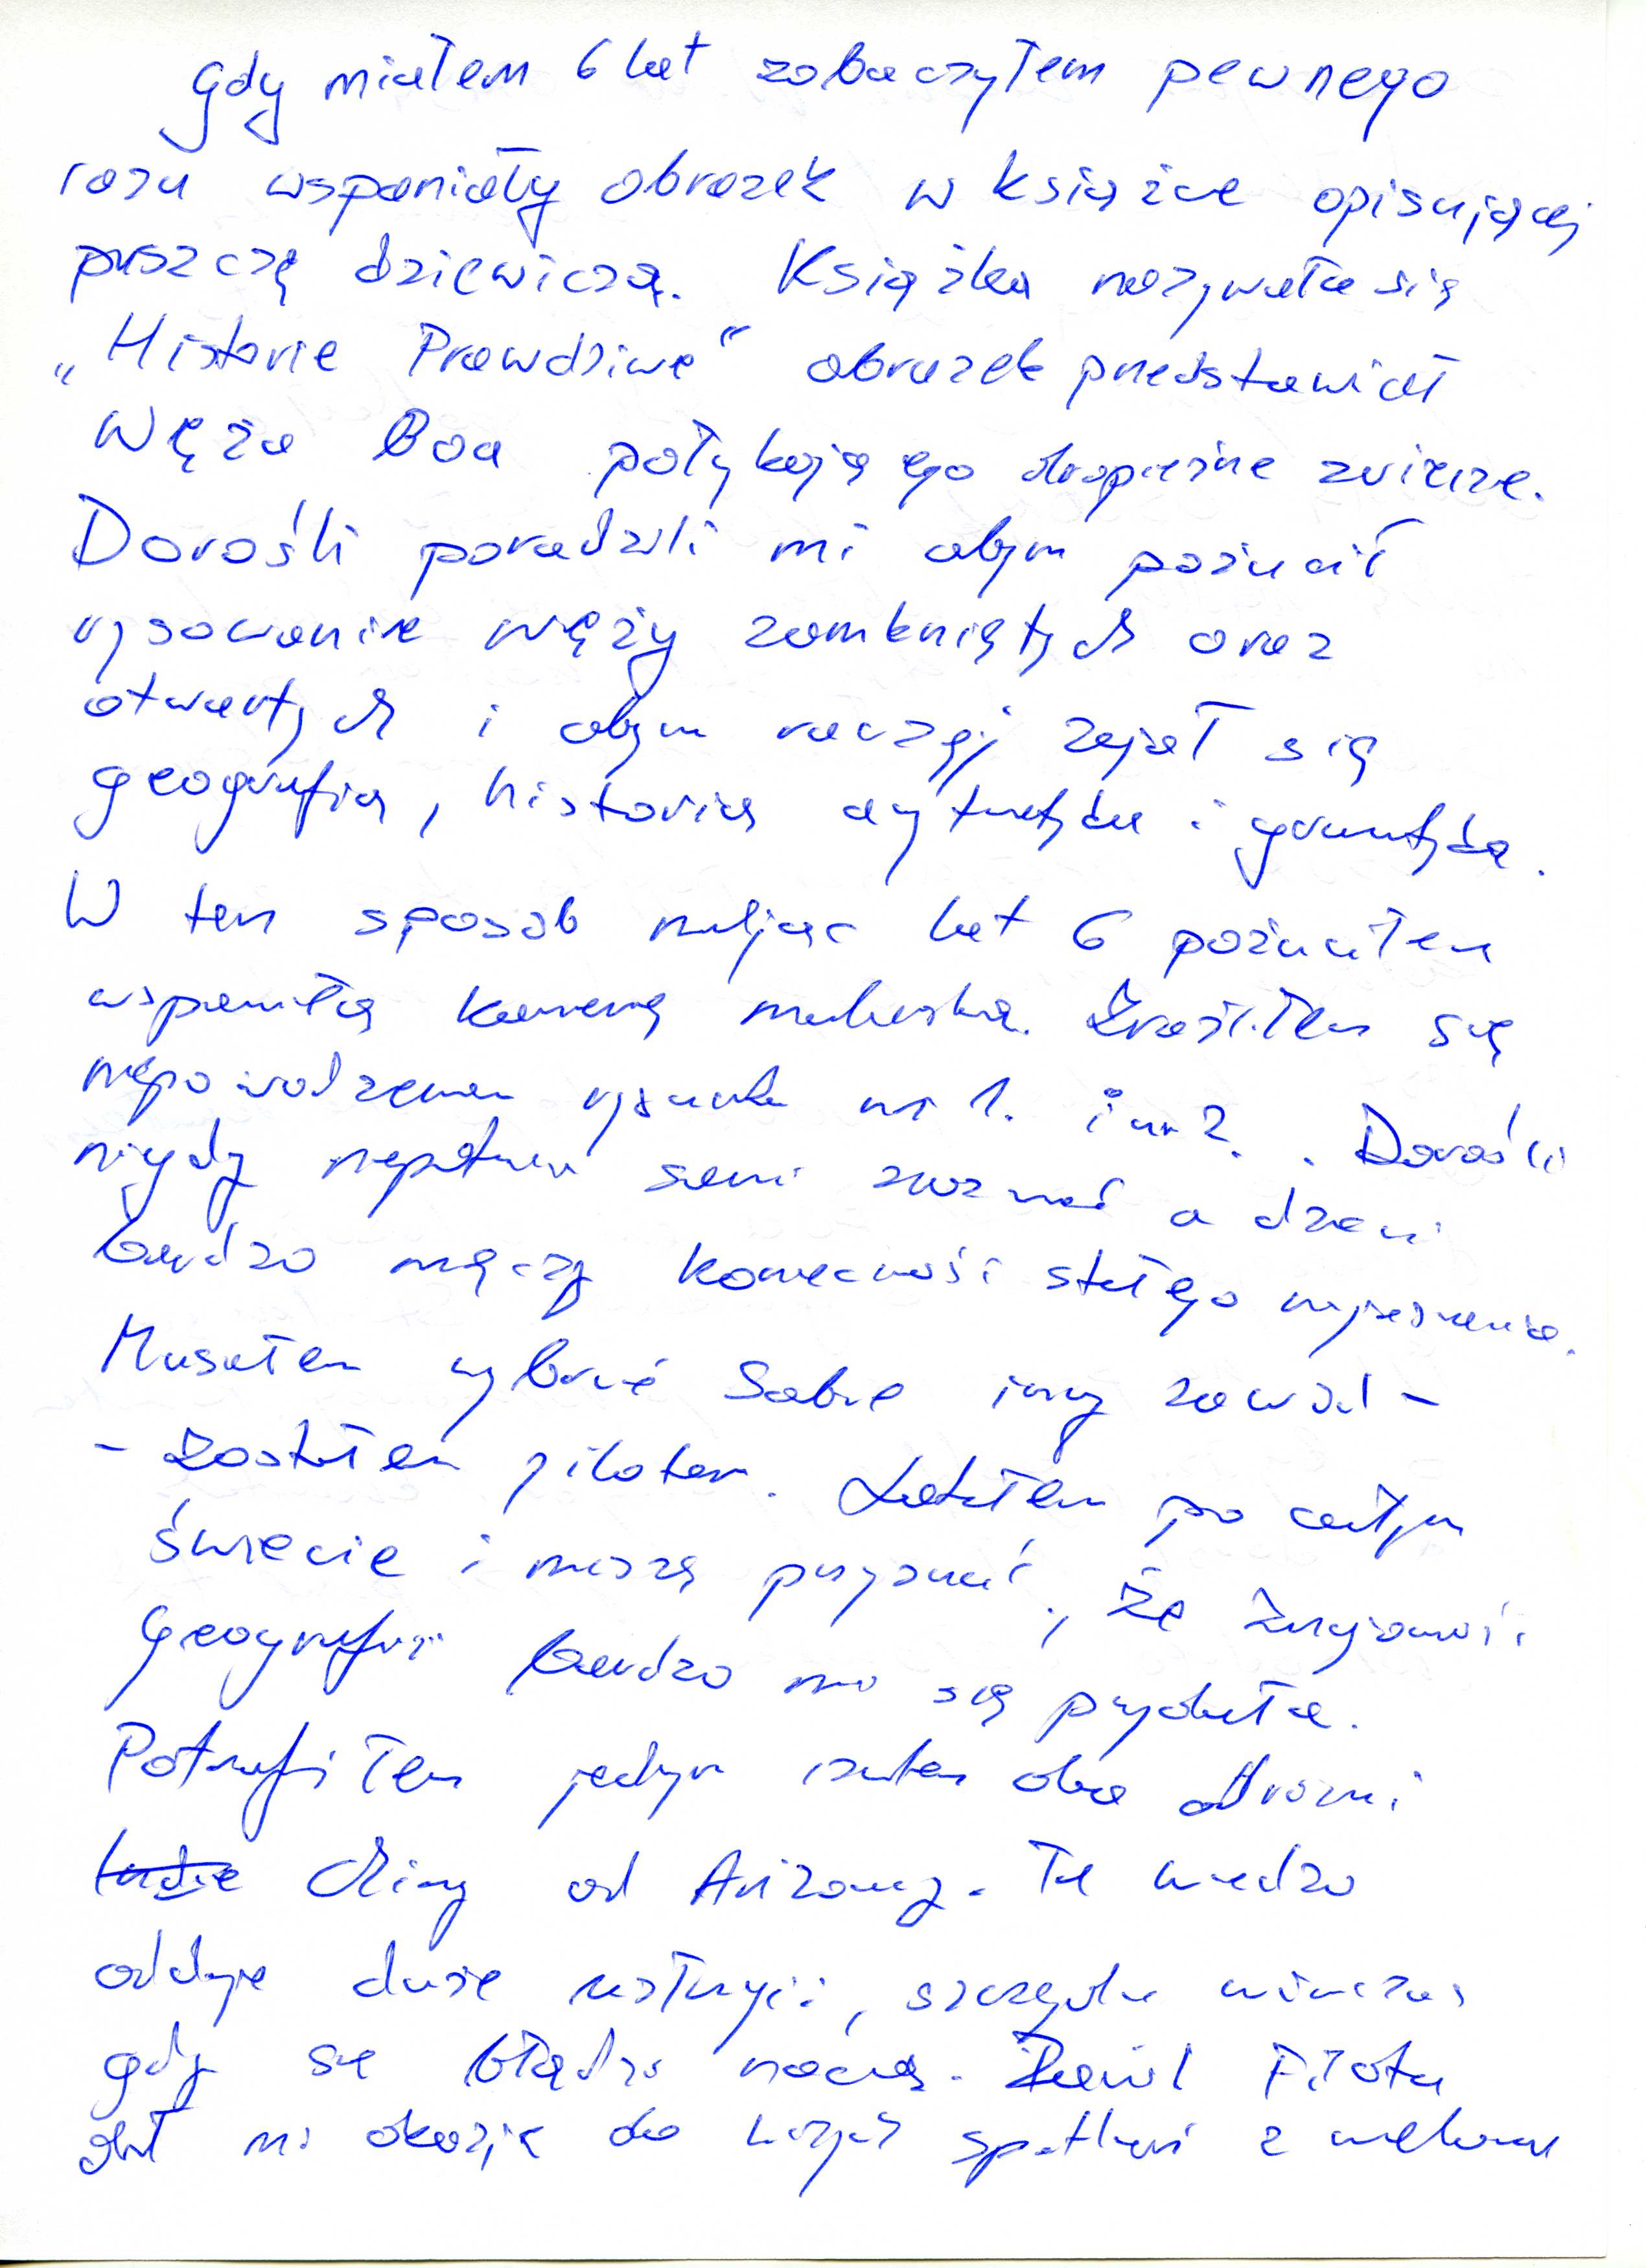 Gdy miałem 6 lat zobaczyłem pewnego
razu wspaniały obrazek w książce opisującej
puszczę dziewiczą. Książka nazywała się
„Historie Prawdziwe" obrazek przedstawiał
Węża Boa połykającego drapieżne zwierzę.
Dorośli poradzili mi abym porzucił
rysowanie węży zamkniętych oraz
otwartych i abym raczej zajął się
geografią, historią arytmetyką i gramatyką.
W ten sposób mając lat 6 porzuciłem
wspaniałą karierę malarską. Zraziłem się
niepowodzeniem rysunku nr 1. i nr 2. . Dorośli
nigdy nie potrafią sami zrozumieć a dzieci
bardzo męczy konieczność stałego wyjaśniania.
Musiałem wybrać sobie inny zawód -
- zostałem pilotem. Latałem po całym
świecie i muszę przyznać, że znajomość
Geografii bardzo mi się przydała.
Potrafiłem jednym rzutem oka odróżnić
Chiny od Arizony. Ta wiedza
oddaje duże usługi, szczególnie wówczas
gdy się błądzi nocą. Zawód Pilota
dał mi okazję do licznych spotkań z wieloma